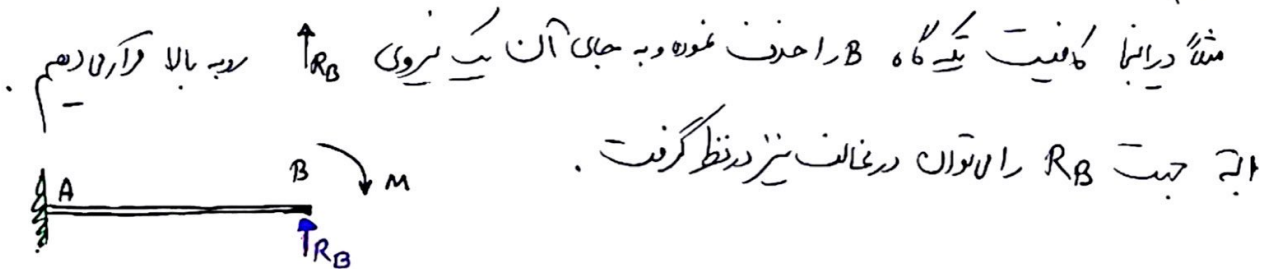 مثلاً در اینجا کافیست تکیه گاه B را حذف نموده و به جای آن یک نیروی R_B رو به بالا قرار می دهیم .
البته جهت R_B را می توان در مخالف نیز در نظر گرفت .
A B M
R_B